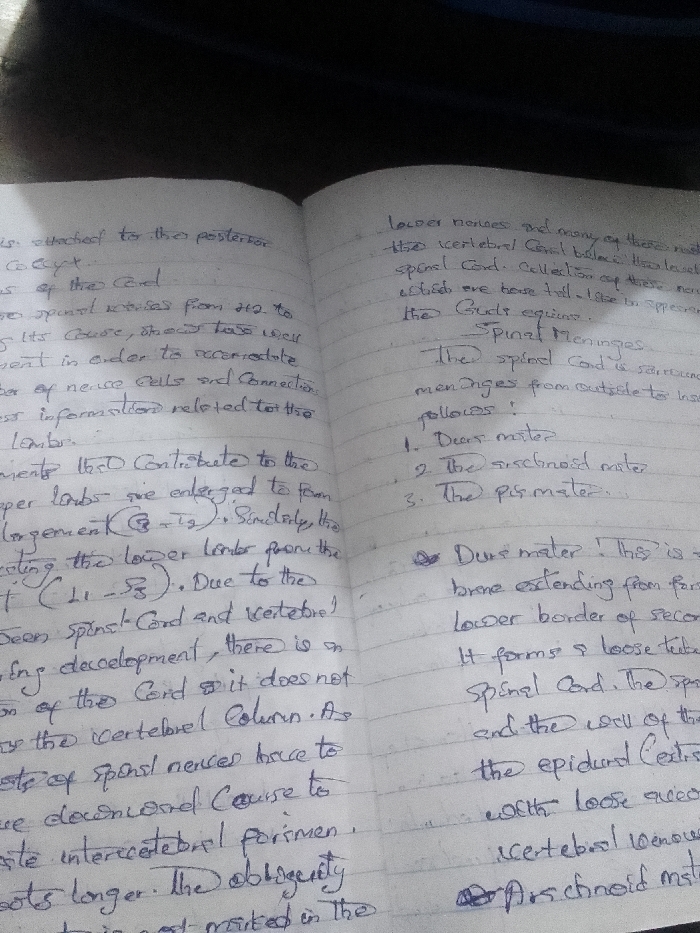 is attached to the posterior
Coccyx.
of the Cord
spinal nerves from to
its course, have well
ment in order to accomodate
ber of nerve Cells and Connection
ess information related to the
Limbs.
ments that Contribute to the
pper limbs are enlarged to form
largement ( - T2). Similarly, the
the lower limbs from the
t (L1 - S3). Due to the
ween spinal Cord and vertebral
ing development, there is an
n of the Cord so it does not
the vertebral Column. As
of spinal nerves have to
downward Course to
ite intervetebral forsmen.
oots longer. The obliquity
most marked in the
lower nerves and many of these
the vertebral Canal below the
spinal Cord. Collection of these
which are horse tail-like in appear
the Cauda equina.
Spinal Meninges
The spinal Cord is surroun
meninges from outside to ins
follows:
1. Dura mater
2. The arachnoid mater
3. The pia mater.
Dura mater: This is
brane extending from for
lower border of secon
It forms a loose tub
spinal Cord. The sp
and the wall of th
the epidural (extr
with loose
vertebral venou
Arachnoid mat